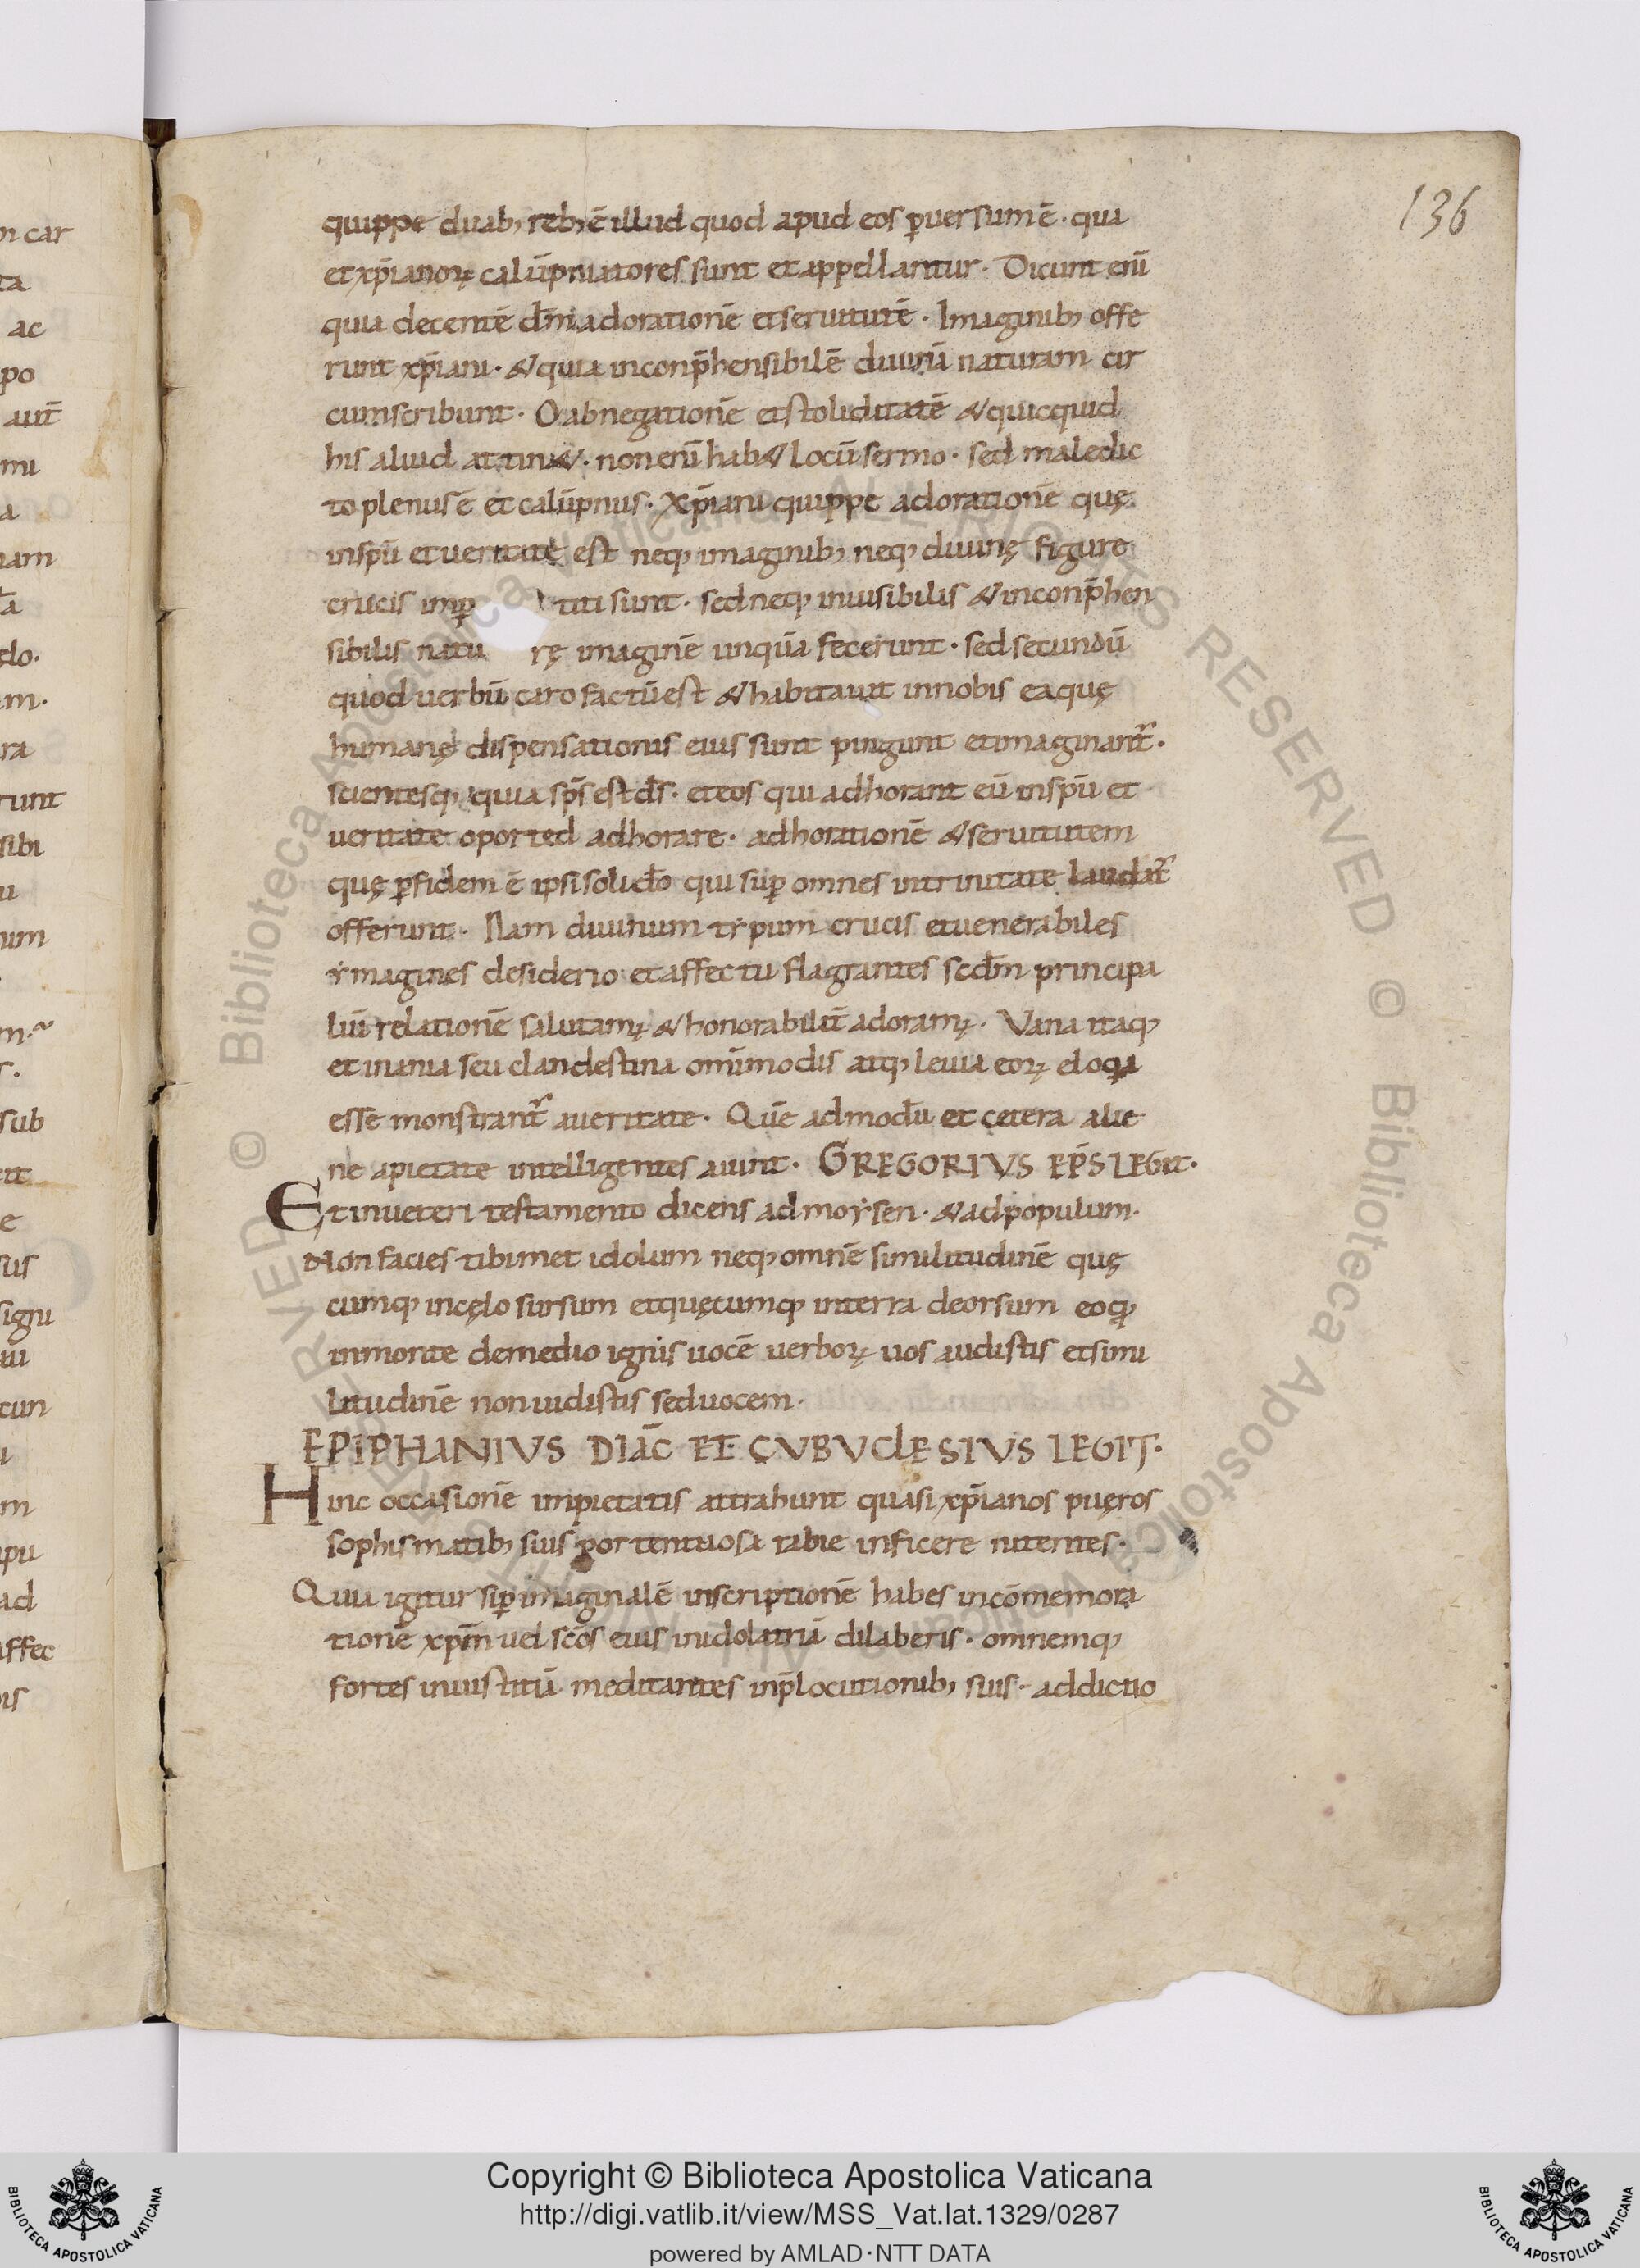 136
quippe duab; reb; ē illud quod apud eos ꝑuersum ē· qua
et xp̄ianoꝝ calūpniatores sunt et appellantur· Dicunt eni̅
quia decentē dn̄i adorationē et seruitutē· Imaginib; offe
runt xp̄iani· & quia inconp̄hensibilē diuinā naturam cir
cumscribunt· O abnegationē et stoliditatē & quicquid
his aliud attin&· non eni̅ hab& locū sermo· sed maledic
to plenus ē et calūpniis· Xp̄iani quippe adorationē quę
in sp̄u et ueritate est neq; imaginib; neq; diuinę figure
crucis imp titi sunt· sed neq; inuisibilis & inconp̄hen
sibilis natu rę imaginē unquā fecerunt· sed secundū
quod uerbū caro factū est & habitauit in nobis ea quę
humanę dispensationis eius sunt pingunt et imaginant᷑·
scientesq; quia sp̄s est d̄s· et eos qui adhorant eū in sp̄u et
ueritate oported adhorare· adhorationē & seruitutem
quę ꝑ fidem ē ipsi soli dō qui suꝑ omnes in trinitate laudat᷑
offerunt· Nam diuinum tẏpum crucis et uenerabiles
ẏmagines desiderio et affectu flagrantes scd̄m principa
liū relationē salutamꝰ & honorabilit̄ adoramꝰ· Vana itaq;
et inania seu clandestina omīmodis atq; leuia eoꝝ eloqia
esse monstrant᷑ a ueritate· Quē admodū et cetera alie
ne a pietate intelligentes aiunt· GREGORIVS EP̄S LEGit·
Et in ueteri testamento dicens ad moẏsen· & ad populum·
Non facies tibimet idolum neq; omnē similitudinē quę
cumq; in cęlo sursum et quęcumq; in terra deorsum eo qđ
in monte de medio ignis uocē uerboꝝ uos audistis et simi
litudinē non uidistis sed uocem·
EPIPHANIVS DIAC̄ ET CVBVCLESIVS LEGIT·
Hinc occasionē impietatis attrahunt quasi xp̄ianos pueros
sophismatib; suis portentuosa rabie inficere nitentes·
Qui igitur suꝑ imaginalē inscriptionē habes in cōmemora
tionē xp̄m uel scōs eius in idolatriā dilaberis· omnemq;
fortes iniustitiā meditantes in p̄locutionib; suis· addictio
n car
ta
ac
po
aut̄
mi
a
am
elo·
m·
ra
runt
sibi
u
um
sub
it
e
sus
signi
cun
m
ipu
ad
affec
is
© Biblioteca Apostolica Vaticana ALL RIGHTS RESERVED © Biblioteca Apostolica Vaticana ALL RIGHTS RESERVED
Copyright © Biblioteca Apostolica Vaticana
http://digi.vatlib.it/view/MSS_Vat.lat.1329/0287
powered by AMLAD·NTT DATA
BIBLIOTECA APOSTOLICA VATICANA
BIBLIOTECA APOSTOLICA VATICANA